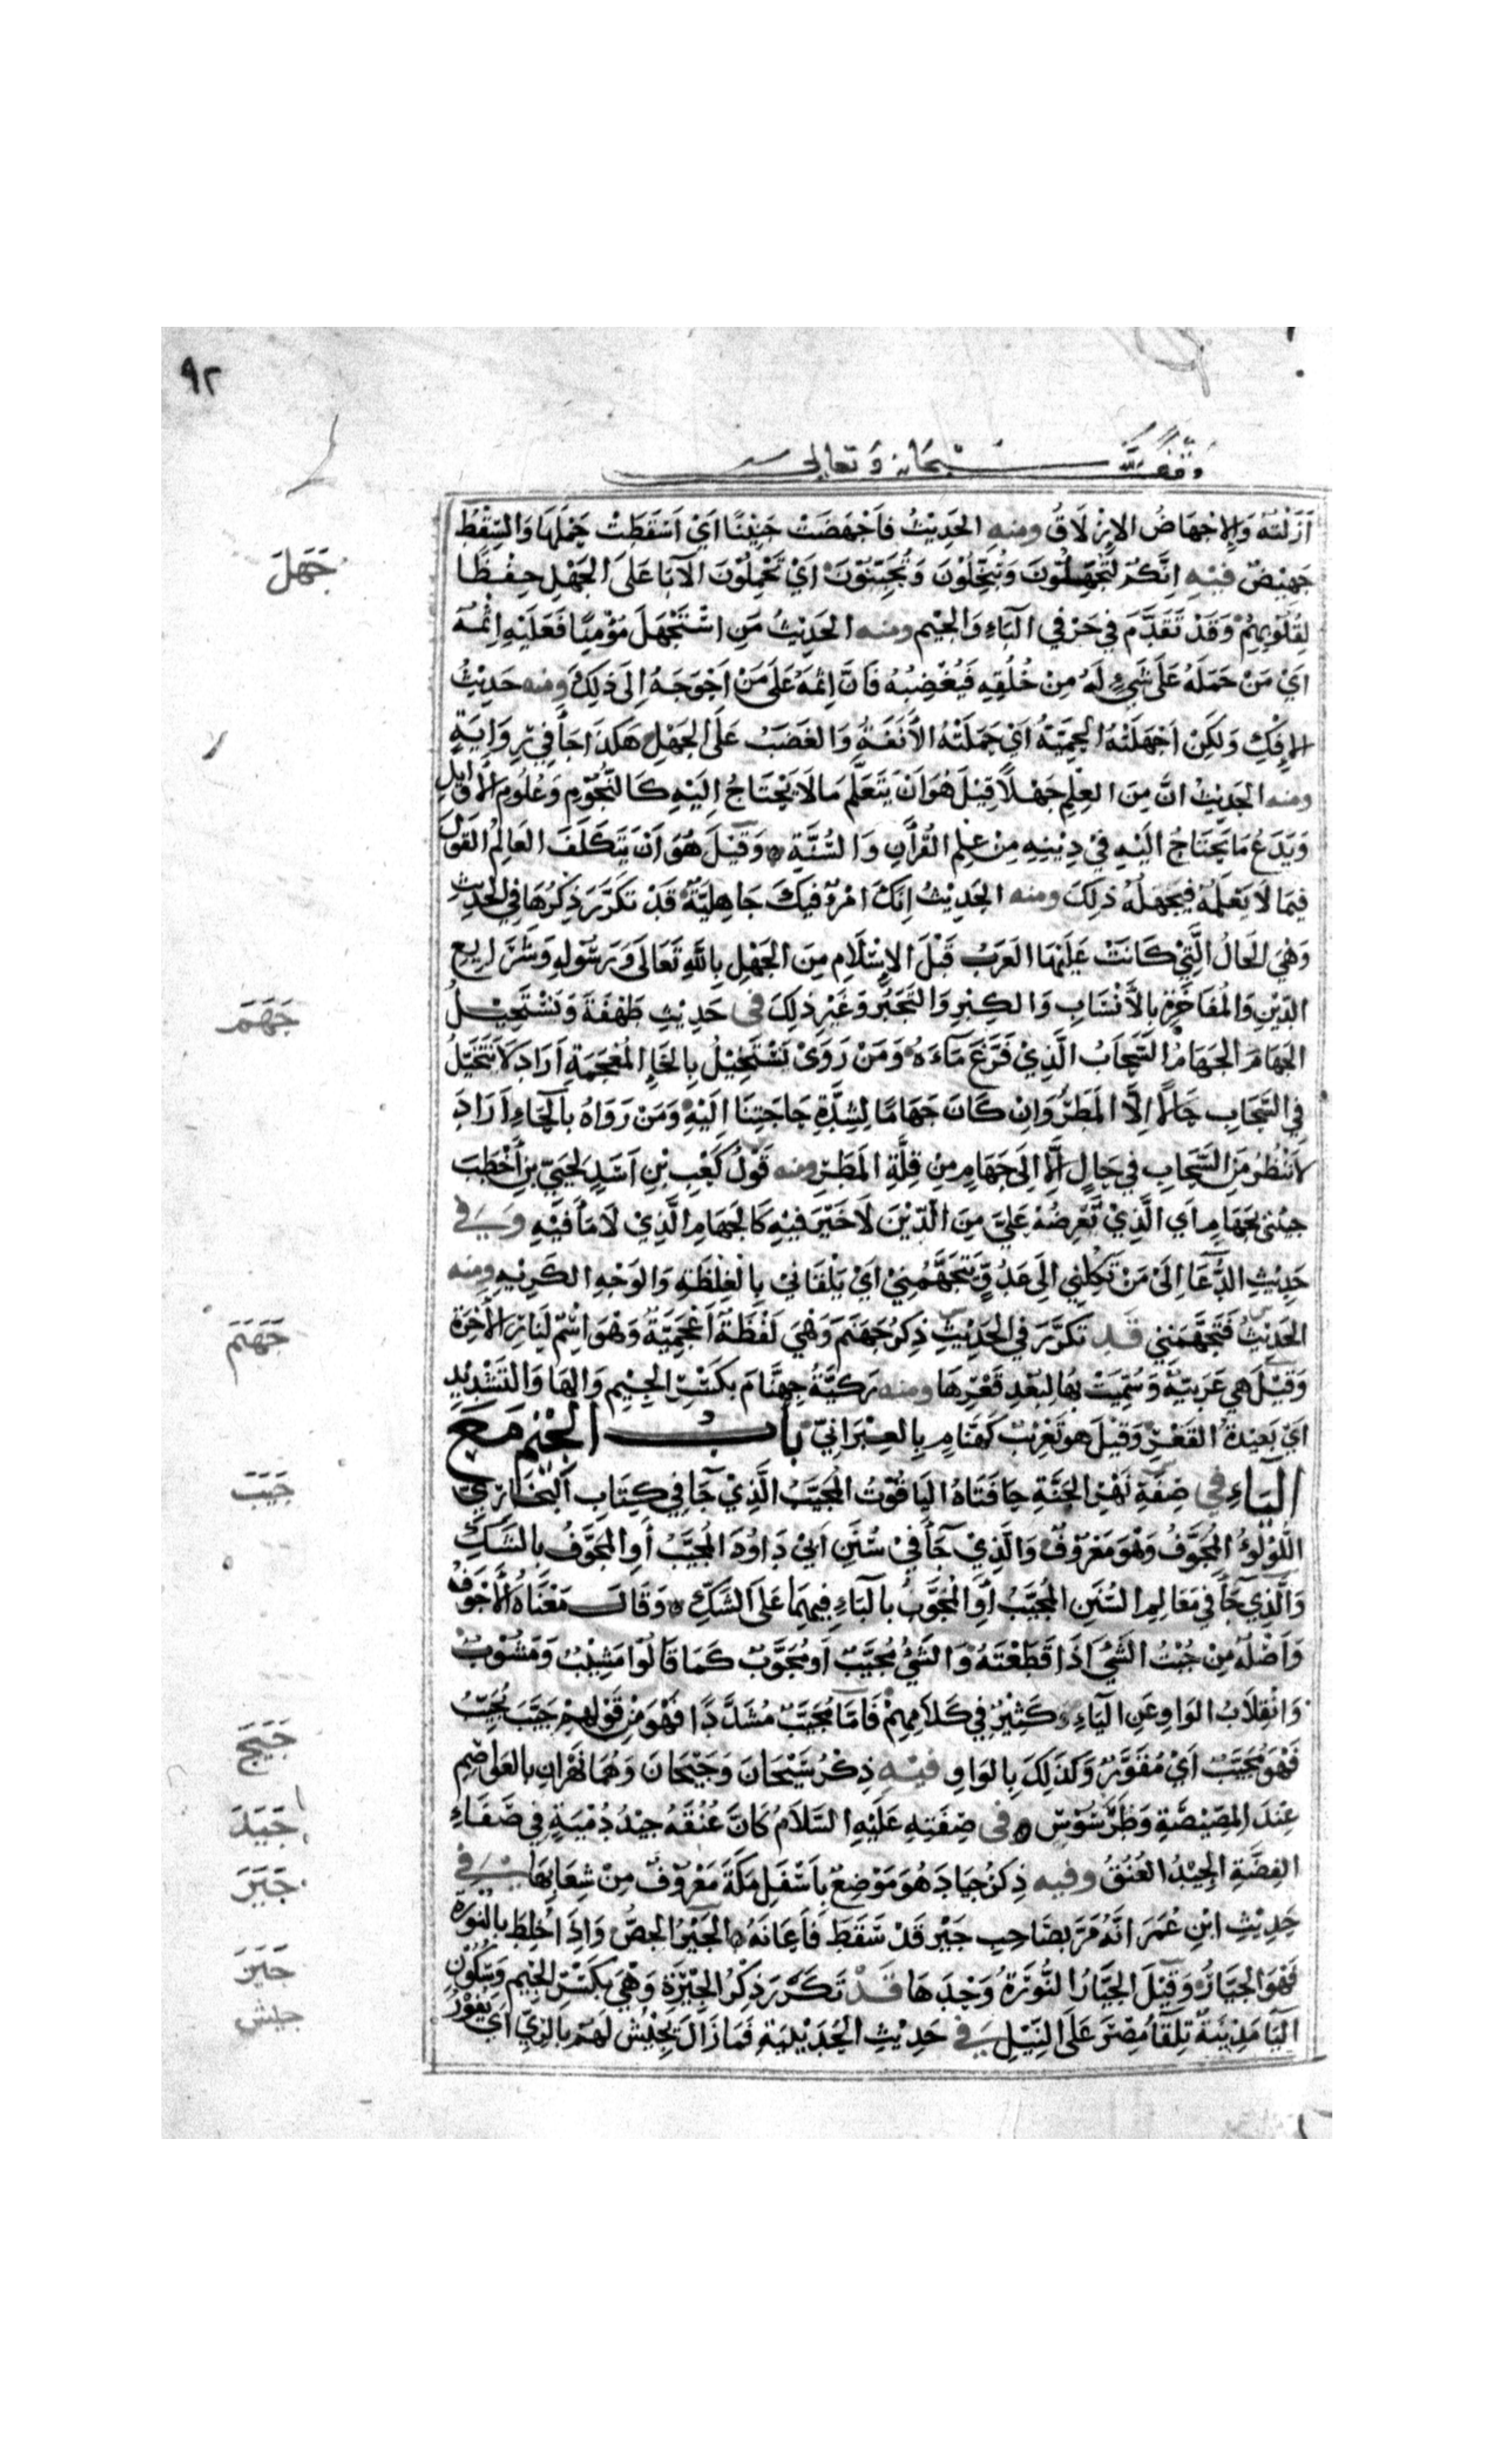 ٩٢
وقف لله سبحانه وتعالى
اَزَلْتَه وَالاِجْهَاضُ الاِزْلَاقُ ومنه الحَدِيْثُ فَاَجْهَضَتْ جَنِيْنًا اَيْ اَسْقَطَتْ حَمْلَهَا وَالسِّقْطُ
جَهِيْضٌ فيْهِ اِنَّكُمْ لَتُجَهِّلُوْنَ وَتُبَخِّلُوْنَ وَتُجَبِّنُوْنَ اَيْ تَحْمِلُوْنَ الآبَا عَلَى الجَهْلِ حِفْظًا
جَهَلَ
لِقُلُوْبِهِمْ وَقَدْ تَقَدَّمَ فِي حَرْفي البَاءِ وَالجِيْمِ ومنه الحَدِيْثُ مَنِ اسْتَجْهَلَ مُؤْمِنًا فَعَلَيْهِ اِثْمُهُ
اَيْ مَنْ حَمَلَهُ عَلَى شَيْءٍ لَهُ مِنْ خُلُقِهِ فَيُغْضِبُهُ فَاِنَّ اِثْمَهُ عَلَى مَنْ اَحْوَجَهُ اِلَى ذٰلِكَ ومنه حَدِيْثُ
الاِفْكِ وَلَكِنْ اجْهَلَتْهُ الحَمِيَّةُ اَيْ حَمَلَتْهُ الأَنَفَةُ وَالغَضَبُ عَلَى الجَهْلِ هَكَذَا جَأَ فِيْ رِوَايَةٍ
ومنه الحَدِيْثُ اِنَّ مِنَ العِلْمِ جَهْلاً قِيْلَ هُوَ اَنْ يَتَعَلَّمَ مَا لَا يَحْتَاجُ اِلَيْهِ كَالنُّجُوْمِ وَعُلُومِ الاَوَائِلِ
وَيَدَعُ مَا يَحْتَاجُ اِلَيْهِ فِيْ دِيْنِهِ مِنْ عِلْمِ القُرْاٰنِ وَالسُّنَّةِ ٥ وَقِيْلَ هُوَ اَنْ يَتَكَلَّفَ العَالِمُ القَوْلَ
فِيْمَا لَا يَعْلَمُهُ فَيُجَهِّلُهُ ذٰلِكَ ومنه الحَدِيْثُ اِنَّكَ امْرُؤٌ فِيْكَ جَاهِلِيَّةٌ قَدْ تَكَرَّرَ ذِكْرُهَا فِي الحَدِيْثِ
وَهِيَ الحَالُ الَّتِيْ كَانَتْ عَلَيْهَا العَرَبُ قَبْلَ الاِسْلَامِ مِنَ الجَهْلِ بِاللهِ تَعَالَى وَرَسُوْلِهِ وَشَرَايِعِ
الدِّيْنِ وَالمُفَاخَرَةِ بِالأَنْسَابِ وَالكِبْرِ وَالتَّجَبُّرِ وَغَيْرِ ذٰلِكَ في حَدِيْثِ طَهْفَةَ وَنَسْتَحِيْلُ
جَهَمَ
الجَهَامَ الجَهَامُ السَّحَابُ الَّذِيْ فَرَغَ مَآءُهُ وَمَنْ رَوَىْ نَسْتَخِيْلُ بِالخَاءِ المُعْجَمَةِ اَرَادَ لَا نَتَخَيَّلُ
فِي السَّحَابِ حَالًا اِلَّا المَطَرَ وَاِنْ كَانَ جَهَامًا لِشِدَّةِ حَاجَتِنَا اِلَيْهِ وَمَنْ رَوَاهُ بِالحَاءِ اَرَادَ
لَا نَنْظُرُ مِنَ السَّحَابِ فِي حَالٍ اِلَّا اِلَى جَهَامٍ مِنْ قِلَّةِ المَطَرِ ومنه قَوْلُ كَعْبِ بْنِ اَسَدٍ لِحُيَيِّ بْنِ أَخْطَبَ
جِئْتَنِي بِجَهَامٍ اَي الَّذِيْ تَعْرِضُهُ عَلَيَّ مِنَ الدِّيْنِ لَا خَيْرَ فِيْهِ كَالجَهَامِ الَّذِيْ لَا مَأَ فِيْهِ وفي
حَدِيْثِ الدُّعَا اِلَىْ مَنْ تَكِلُنِي اِلَى عَدُوٍّ يَتَجَهَّمُنِيْ اَيْ يَلْقَانِيْ بِالغِلْظَةِ وَالوَجْهِ الكَرِيْهِ ومنه
الحَدِيْثُ فَتَجَهَّمَنِي قَد تَكَرَّرَ فِي الحَدِيْثِ ذِكْرُ جَهَنَّمَ وَهِيَ لَفْظَةٌ اَعْجَمِيَّةٌ وَهُوَ اسْمٌ لِنَارِ الاٰخِرَةِ
جَهَنَم
وَقِيْلَ هِيَ عَرَبِيَّةٌ وَسُمِّيَتْ بِهَا لِبُعْدِ قَعْرِهَا ومنه رَكِيَّةٌ جِهِنَّام بِكَسْرِ الجِيْمِ وَالهَا وَالتَّشْدِيْدِ
اَيْ بَعِيْدَةُ القَعْرِ وَقِيْلَ هُوَ تَعْرِيْبُ كِهِنَّامٍ بِالعِبْرَانِيّ بابُ الجِيْمِ مَعَ
اليَاءِ في صِفَةِ نَهْرِ الجَنَّةِ حَافَتَاهُ اليَاقُوْتُ المُجَيَّبُ الَّذِيْ جَآ فِي كِتَابِ البُخَارِيِّ
جَيَبَ
اللُّؤْلُؤُ المُجَوَّفُ وَهُوَ مَعْرُوْفٌ وَالَّذِيْ جَآ فِيْ سُنَنِ اَبِيْ دَاوُدَ المُجَيَّبُ أَوِ المُجَوَّفُ بِالشَّكِّ
وَالَّذِي جَآ فِي مَعَالِمِ السُّنَنِ المُجَيَّبُ أَوِ المُجَوَّبُ بِالبَاءِ فِيهِمَا عَلَى الشَّكِّ ٥ وَقَالَ مَعْنَاهُ الأَجْوَفُ
وَاَصْلُهُ مِنْ جُبْتُ الشَّئَ اِذَا قَطَعْتَهُ وَالشَّئُ مُجَيَّبٌ اَو مُجَوَّبٌ كَمَا قَالُوْا مَشِيْبٌ وَمَشُوْبٌ
وَانْقِلَابُ الوَاوِ عَنِ اليَاءِ كَثِيْرٌ فِي كَلَامِهِمْ فَاَمَّا مُجَيَّبٌ مُشَدَّدًا فَهُوَ مِنْ قَوْلِهِمْ جَيَّبَ يُجَيِّبُ
فَهُوَ مُجَيَّبٌ اَيْ مُقَوَّرٌ وَكَذٰلِكَ بِالوَاوِ فيْهِ ذِكْرُ سَيْحَانَ وَجَيْحَانَ وَهُمَا نَهْرَانِ بِالعَوَاصِمِ
جَيَحَ
عِنْدَ المَصِيْصَّةِ وَطَرَسُوْسٍ ٥ في صِفَتِهِ عَلَيْهِ السَّلَامُ كَانَّ عُنُقَهُ جِيْدُ دُمْيَةٍ فِي صَفَاءِ
جَيَدَ
الفِضَّةِ الجِيْدُ العُنُقُ وفيه ذِكْرُ جِيَادَ هُوَ مَوْضِعٌ بِاَسْفَلِ مَكَّةَ مَعْرُوْفٌ مِنْ شِعَابِهَا في
جَيَرَ
حَدِيْثِ ابْنِ عُمَرَ اَنَّهُ مَرَّ بِصَاحِبِ جِيْرٍ قَدْ سَقَطَ فَاَعَانَهُ ٥ الجِيْرُ الجِصُّ وَاِذَا خُلِطَ بِالنُّوْرَةِ
فَهْوَ الجَيَّارُ وَقِيْلَ الجَيَّارُ النُّوْرَةُ وَحْدَهَا قَدْ تَكَرَّرَ ذِكْرُ الجِيْزَةِ وَهْيَ بِكَسْرِ الجِيْمِ وَسُكُوْنِ
جَيَزَ
اليَآ مَدِيْنَةٌ تِلْقَآ مِصْرَ عَلَى النِّيْلِ في حَدِيْثِ الحُدَيْبِيَةِ فَمَا زَالَ يَجِيْشُ لَهُمْ بِالرِّيِّ اَيْ يَفُوْرُ
جيش